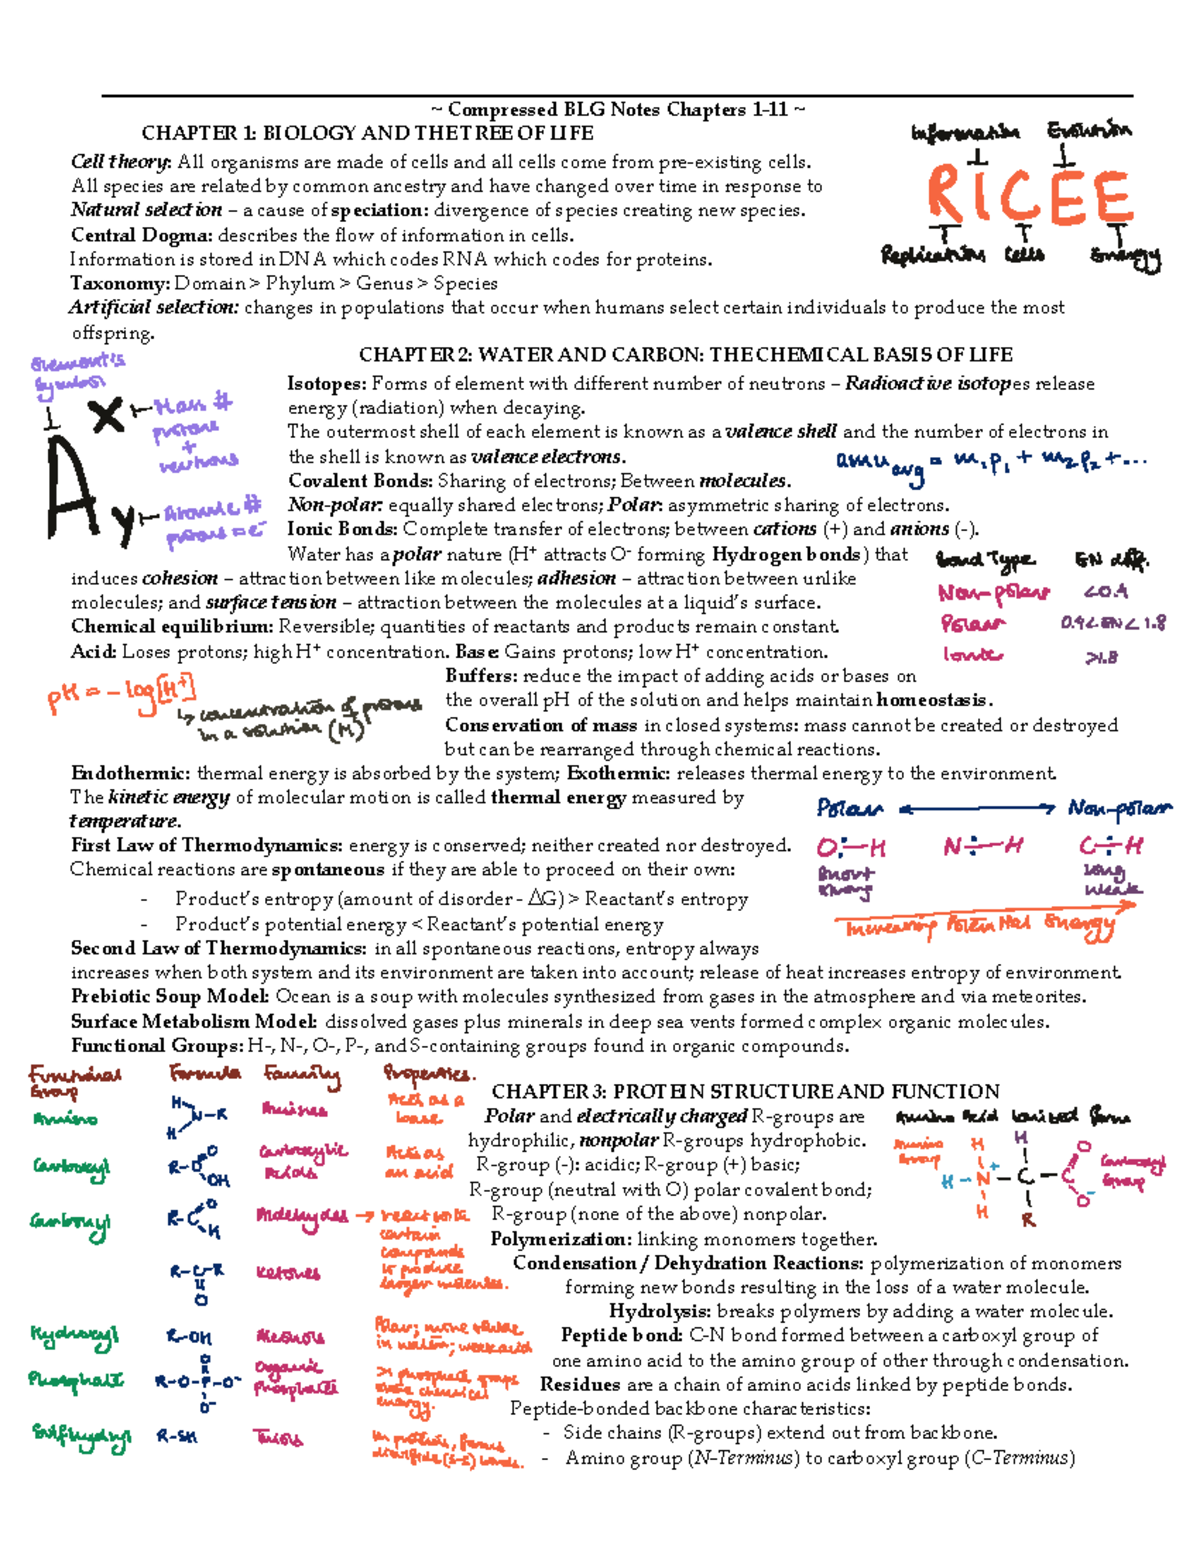 ~ Compressed BLG Notes Chapters 1-11 ~
CHAPTER 1: BIOLOGY AND THE TREE OF LIFE
Cell theory: All organisms are made of cells and all cells come from pre-existing cells.
All species are related by common ancestry and have changed over time in response to
Natural selection – a cause of speciation: divergence of species creating new species.
Central Dogma: describes the flow of information in cells.
Information is stored in DNA which codes RNA which codes for proteins.
Taxonomy: Domain > Phylum > Genus > Species
Artificial selection: changes in populations that occur when humans select certain individuals to produce the most
offspring.
Information Evolution
RICEE
Replication Cells Energy
CHAPTER 2: WATER AND CARBON: THE CHEMICAL BASIS OF LIFE
Element's
Symbol
X Mass #
protons
+
neutrons
A
y Atomic #
protons = e-
Isotopes: Forms of element with different number of neutrons – Radioactive isotopes release
energy (radiation) when decaying.
The outermost shell of each element is known as a valence shell and the number of electrons in
the shell is known as valence electrons.
amu avg = m1p1 + m2p2 + ...
Covalent Bonds: Sharing of electrons; Between molecules.
Non-polar: equally shared electrons; Polar: asymmetric sharing of electrons.
Ionic Bonds: Complete transfer of electrons; between cations (+) and anions (-).
Water has a polar nature (H+ attracts O- forming Hydrogen bonds) that
induces cohesion – attraction between like molecules; adhesion – attraction between unlike
molecules; and surface tension – attraction between the molecules at a liquid's surface.
Bond Type EN diff.
Non-polar <0.4
Polar 0.4<EN<1.8
Ionic >1.8
Chemical equilibrium: Reversible; quantities of reactants and products remain constant.
Acid: Loses protons; high H+ concentration. Base: Gains protons; low H+ concentration.
pH = -log[H+]
↳ concentration of protons
in a solution (M)
Buffers: reduce the impact of adding acids or bases on
the overall pH of the solution and helps maintain homeostasis.
Conservation of mass in closed systems: mass cannot be created or destroyed
but can be rearranged through chemical reactions.
Endothermic: thermal energy is absorbed by the system; Exothermic: releases thermal energy to the environment.
The kinetic energy of molecular motion is called thermal energy measured by
temperature.
First Law of Thermodynamics: energy is conserved; neither created nor destroyed.
Chemical reactions are spontaneous if they are able to proceed on their own:
- Product's entropy (amount of disorder - ΔG) > Reactant's entropy
- Product's potential energy < Reactant's potential energy
Polar ↔ Non-polar
O:-H N:-H C:-H
Short Long
Strong Weak
Increasing Potential Energy
Second Law of Thermodynamics: in all spontaneous reactions, entropy always
increases when both system and its environment are taken into account; release of heat increases entropy of environment.
Prebiotic Soup Model: Ocean is a soup with molecules synthesized from gases in the atmosphere and via meteorites.
Surface Metabolism Model: dissolved gases plus minerals in deep sea vents formed complex organic molecules.
Functional Groups: H-, N-, O-, P-, and S-containing groups found in organic compounds.
Functional Group Formula Family Properties
Amino H H N-R Amines Acts as a base
Carboxyl R-C O OH Carboxylic Acids Acts as an acid
Carbonyl R-C O H Aldehydes → react with certain compounds to produce larger molecules.
R-C-R O Ketones
Hydroxyl R-OH Alcohols Polar; more soluble in water; weak acid
Phosphate R-O-P-O- O O- Organic phosphates > phosphate groups more chemical energy.
Sulfhydryl R-SH Thiols In protein, forms disulfide (S-S) bonds.
CHAPTER 3: PROTEIN STRUCTURE AND FUNCTION
Polar and electrically charged R-groups are
hydrophilic, nonpolar R-groups hydrophobic.
R-group (-): acidic; R-group (+) basic;
R-group (neutral with O) polar covalent bond;
R-group (none of the above) nonpolar.
Amino Acid Ionized Form
Amino Group
H H O
H-N+-C-C
H R O-
Carboxyl Group
Polymerization: linking monomers together.
Condensation / Dehydration Reactions: polymerization of monomers
forming new bonds resulting in the loss of a water molecule.
Hydrolysis: breaks polymers by adding a water molecule.
Peptide bond: C-N bond formed between a carboxyl group of
one amino acid to the amino group of other through condensation.
Residues are a chain of amino acids linked by peptide bonds.
Peptide-bonded backbone characteristics:
- Side chains (R-groups) extend out from backbone.
- Amino group (N-Terminus) to carboxyl group (C-Terminus)